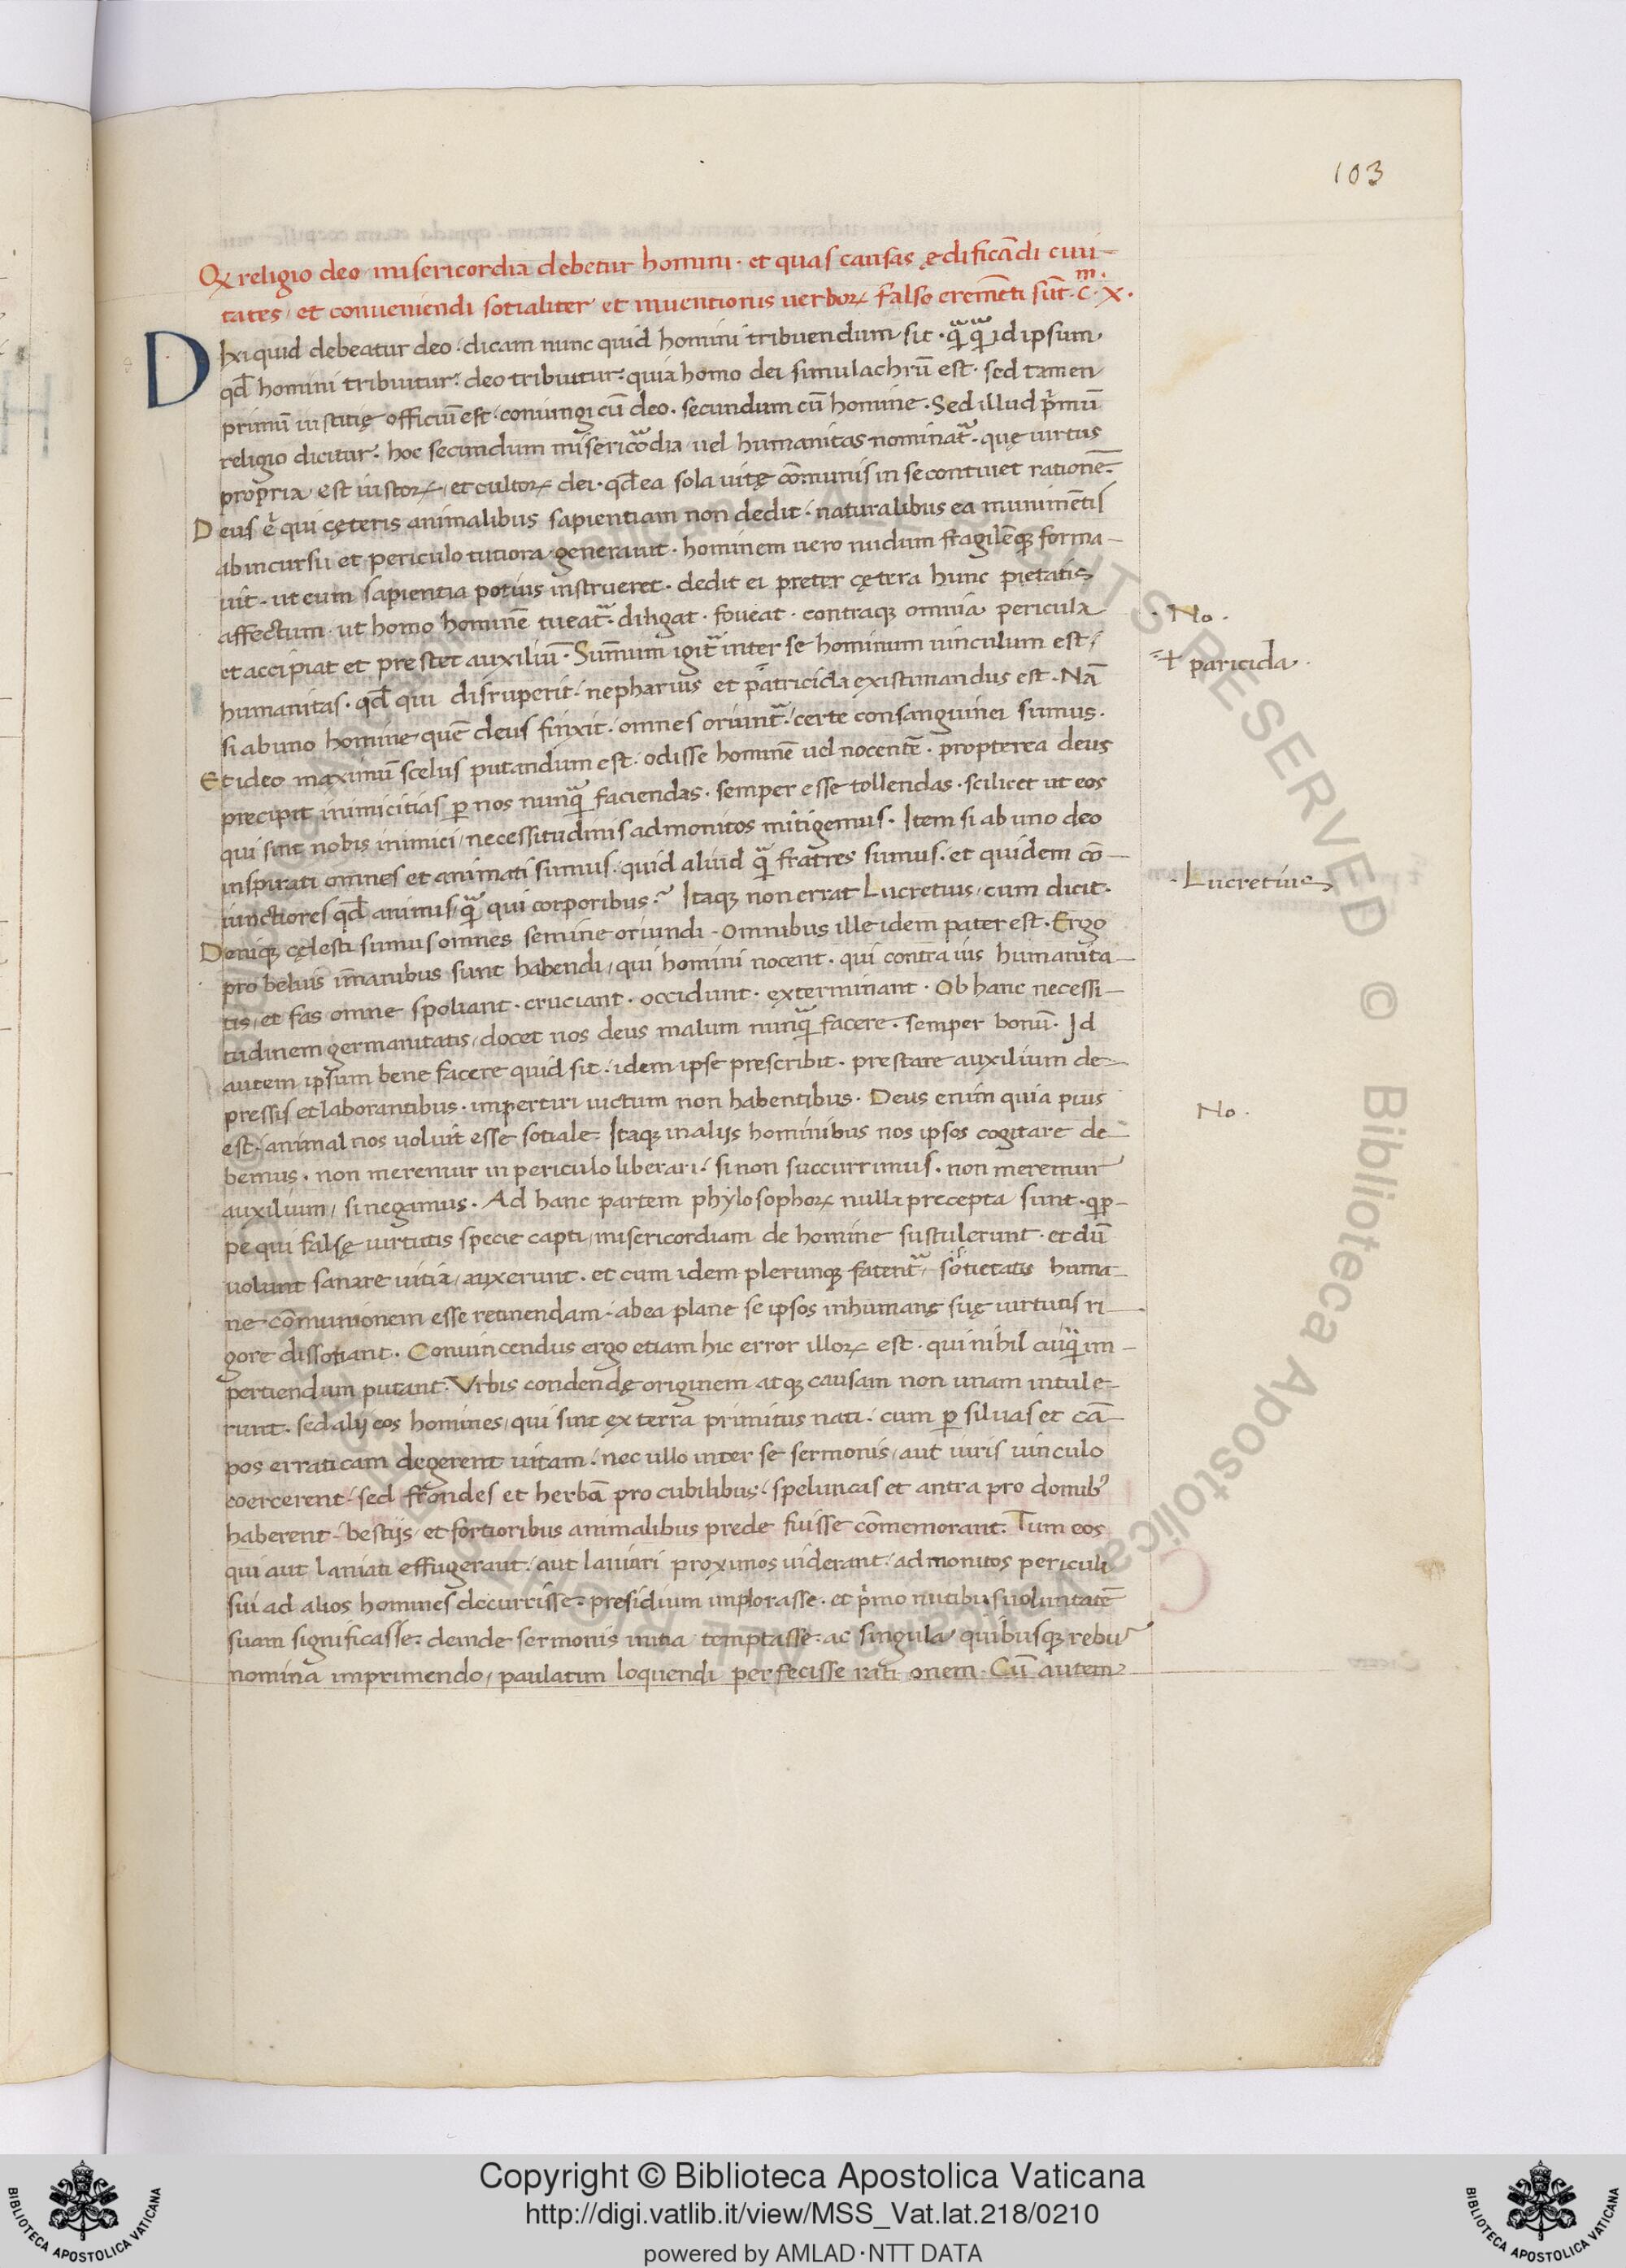 103
Qđ religio deo misericordia debetur homini · et quas causas ędificādi ciui-
tates, et conueniendi sotialiter et inuentionis uerboꝝ falso ereměti sūt · c̄m · x ·
Dixi quid debeatur deo · dicam nunc quid homini tribuendum sit · qͣꝙͣ id ipsum ·
qđ homini tribuitur: deo tribuitur: quia homo dei simulachrū est · sed tamen
primū iustitię officiū est · coniungi cū deo · secundum cū homine · Sed illud p̄mū
religio dicitur: hoc secundum misericordia uel humanitas nominatᷓ · quę uirtus
propria est iustoꝝ, et cultoꝝ dei · qđ ea sola uitę cōmunis in se continet rationē:
Deus .n. qui cęteris animalibus sapientiam non dedit: naturalibus ea munimētis
ab incursu et periculo tutiora generauit · hominem uero nudum fragilēqꝫ forma-
uit · ut eum sapientia potius instrueret · dedit ei preter cętera hunc pietatis
affectum · ut homo hominē tueatᷓ · diligat · foueat · contraqꝫ omnia pericula
et accipiat et prestet auxiliū · Summum igitᷓ inter se hominum uinculum est:
humanitas · qđ qui disruperit: nepharius et patricida existimandus est · Nā
si ab uno homine quē deus finxit · omnes oriuntᷓ: certe consanguinei sumus ·
Et ideo maximū scelus putandum est · odisse hominē uel nocentē · propterea deus
precipit inimicitias ꝑ nos nunqͣ faciendas · semper esse tollendas · scilicet ut eos
qui sint nobis inimici, necessitudinis admonitos mitigemus · Item si ab uno deo
inspirati omnes et animati sumus · quid aliud qͣ fratres sumus · et quidem cō-
iunctiores qđ animis, qͣ qui corporibus? Itaqꝫ non errat Lucretius, cum dicit ·
Deniqꝫ cęlesti sumus omnes semine oriundi - Omnibus ille idem pater est · Ergo
pro beluis īmanibus sunt habendi, qui homini nocent · qui contra ius humanita-
tis, et fas omne spoliant · cruciant · occidunt · exterminant · Ob hanc necessi-
tudinem germanitatis, docet nos deus malum nunqͣ facere · semper bonū · Id
autem ipsum bene facere quid sit: idem ipse prescribit · prestare auxilium de-
pressis et laborantibus · impertiri uictum non habentibus · Deus enim quia pius
est: animal nos uoluit esse sotiale: Itaqꝫ in alijs hominibus nos ipsos cogitare de-
bemus · non meremur in periculo liberari: si non succurrimus · non meremur
auxilium, si negamus · Ad hanc partem phylosophoꝝ nulla precepta sunt · qip-
pe qui falsę uirtutis specie capti, misericordiam de homine sustulerunt · et dū
uolunt sanare uitia, auxerunt · et cum idem plerunqꝫ fatentᷓ, sotietatis huma-
ne cōmunionem esse retinendam: ab ea plane se ipsos inhumanę suę uirtutis ri-
gore dissotiant · Conuincendus ergo etiam hic error illoꝝ est · qui nihil cuiqͣ im-
pertiendum putant: Vrbis condendę originem atqꝫ causam non unam intule-
runt · sed alij eos homines, qui sint ex terra primitus nati: cum ꝑ siluas et cā-
pos erraticam degerent uitam: nec ullo inter se sermonis, aut iuris uinculo
coercerent: sed frondes et herbā pro cubilibus: speluncas et antra pro domibꝰ
haberent: bestijs, et fortioribus animalibus prede fuisse cōmemorant: Tum eos
qui aut laniati effugerant: aut laniari proximos uiderant: admonitos periculi
sui ad alios homines decurrisse: presidium implorasse · et p̄mo nutibus uoluntatē
suam significasse: deinde sermonis initia temptasse: ac singula quibusqꝫ rebus
nomina imprimendo, paulatim loquendi perfecisse rationem · Cū autem
· No ·
+ paricida ·
· Lucretius
No ·
© Biblioteca Apostolica Vaticana ALL RIGHTS RESERVED
Copyright © Biblioteca Apostolica Vaticana
http://digi.vatlib.it/view/MSS_Vat.lat.218/0210
powered by AMLAD·NTT DATA
BIBLIOTECA APOSTOLICA VATICANA
BIBLIOTECA APOSTOLICA VATICANA